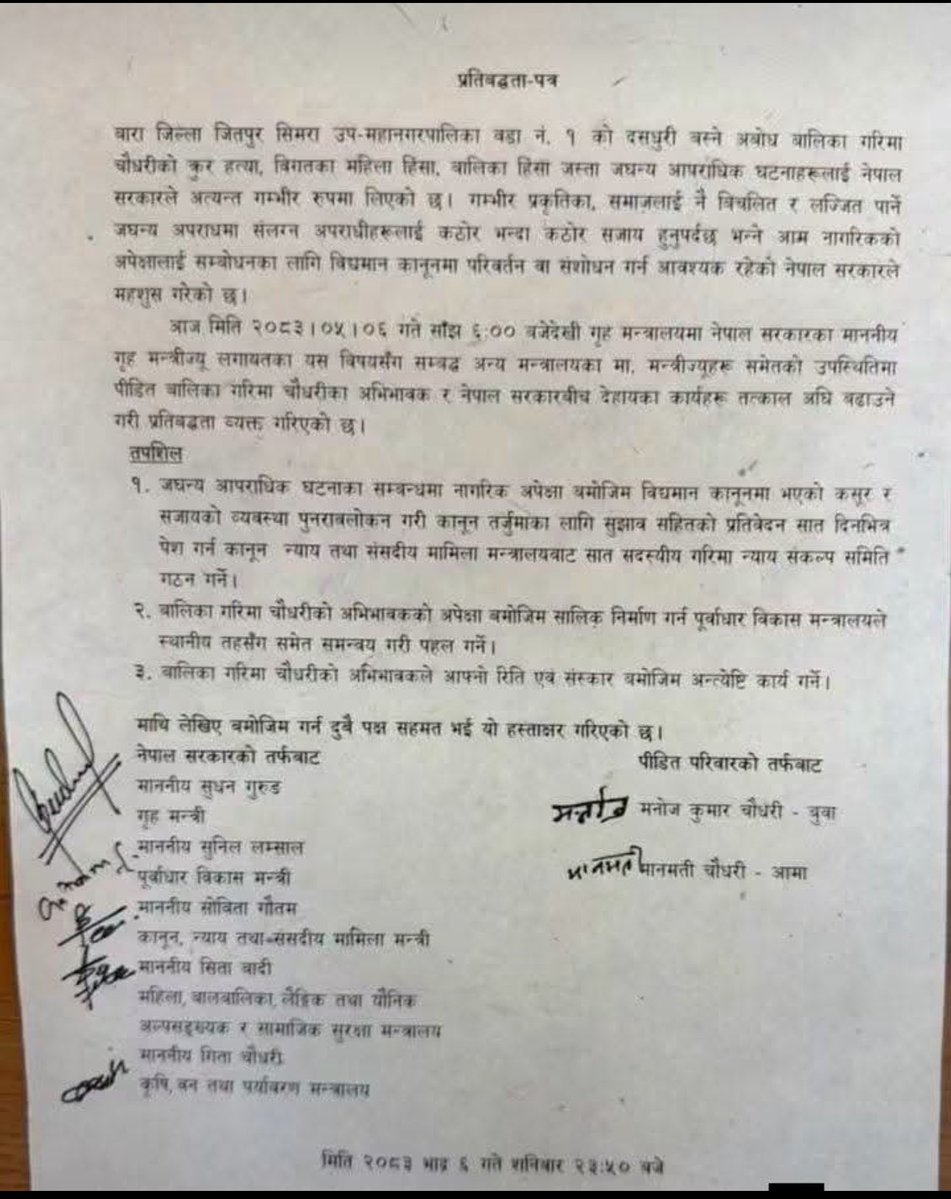 प्रतिबद्धता-पत्र
बारा जिल्ला जितपुर सिमरा उप-महानगरपालिका वडा नं. १ को दसधुरी बस्ने अबोध बालिका गरिमा
चौधरीको क्रुर हत्या, विगतका महिला हिंसा, बालिका हिंसा जस्ता जघन्य आपराधिक घटनाहरूलाई नेपाल
सरकारले अत्यन्त गम्भीर रुपमा लिएको छ। गम्भीर प्रकृतिका, समाजलाई नै विचलित र लज्जित पार्ने
जघन्य अपराधमा संलग्न अपराधीहरूलाई कठोर भन्दा कठोर सजाय हुनुपर्दछ भन्ने आम नागरिकको
अपेक्षालाई सम्बोधनका लागि विद्यमान कानूनमा परिवर्तन वा संशोधन गर्न आवश्यक रहेको नेपाल सरकारले
महशुस गरेको छ।
आज मिति २०८३।०५।०६ गते साँझ ६:०० बजेदेखी गृह मन्त्रालयमा नेपाल सरकारका माननीय
गृह मन्त्रीज्यू लगायतका यस विषयसँग सम्बद्ध अन्य मन्त्रालयका मा. मन्त्रीज्यूहरू समेतको उपस्थितिमा
पीडित बालिका गरिमा चौधरीका अभिभावक र नेपाल सरकारबीच देहायका कार्यहरू तत्काल अघि बढाउने
गरी प्रतिबद्धता व्यक्त गरिएको छ।
तपशिल
१. जघन्य आपराधिक घटनाका सम्बन्धमा नागरिक अपेक्षा बमोजिम विद्यमान कानूनमा भएको कसूर र
सजायको व्यवस्था पुनरावलोकन गरी कानून तर्जुमाका लागि सुझाव सहितको प्रतिवेदन सात दिनभित्र
पेश गर्न कानून न्याय तथा संसदीय मामिला मन्त्रालयबाट सात सदस्यीय गरिमा न्याय संकल्प समिति
गठन गर्ने।
२. बालिका गरिमा चौधरीको अभिभावकको अपेक्षा बमोजिम सालिक निर्माण गर्न पूर्वाधार विकास मन्त्रालयले
स्थानीय तहसँग समेत समन्वय गरी पहल गर्ने।
३. बालिका गरिमा चौधरीको अभिभावकले आफ्नो रिति एवं संस्कार बमोजिम अन्त्येष्टि कार्य गर्ने।
माथि लेखिए बमोजिम गर्न दुबै पक्ष सहमत भई यो हस्ताक्षर गरिएको छ।
नेपाल सरकारको तर्फबाट
माननीय सुधन गुरुङ
गृह मन्त्री
माननीय सुनिल लम्साल
पूर्वाधार विकास मन्त्री
माननीय सोविता गौतम
कानून, न्याय तथा संसदीय मामिला मन्त्री
माननीय सिता वादी
महिला, बालबालिका, लैङ्गिक तथा यौनिक
अल्पसङ्ख्यक र सामाजिक सुरक्षा मन्त्रालय
माननीय गिता चौधरी
कृषि, वन तथा पर्यावरण मन्त्रालय
पीडित परिवारको तर्फबाट
मनोज कुमार चौधरी - बुवा
मानमती मानमती चौधरी - आमा
मिति २०८३ भाद्र ६ गते शनिबार २३:५० बजे